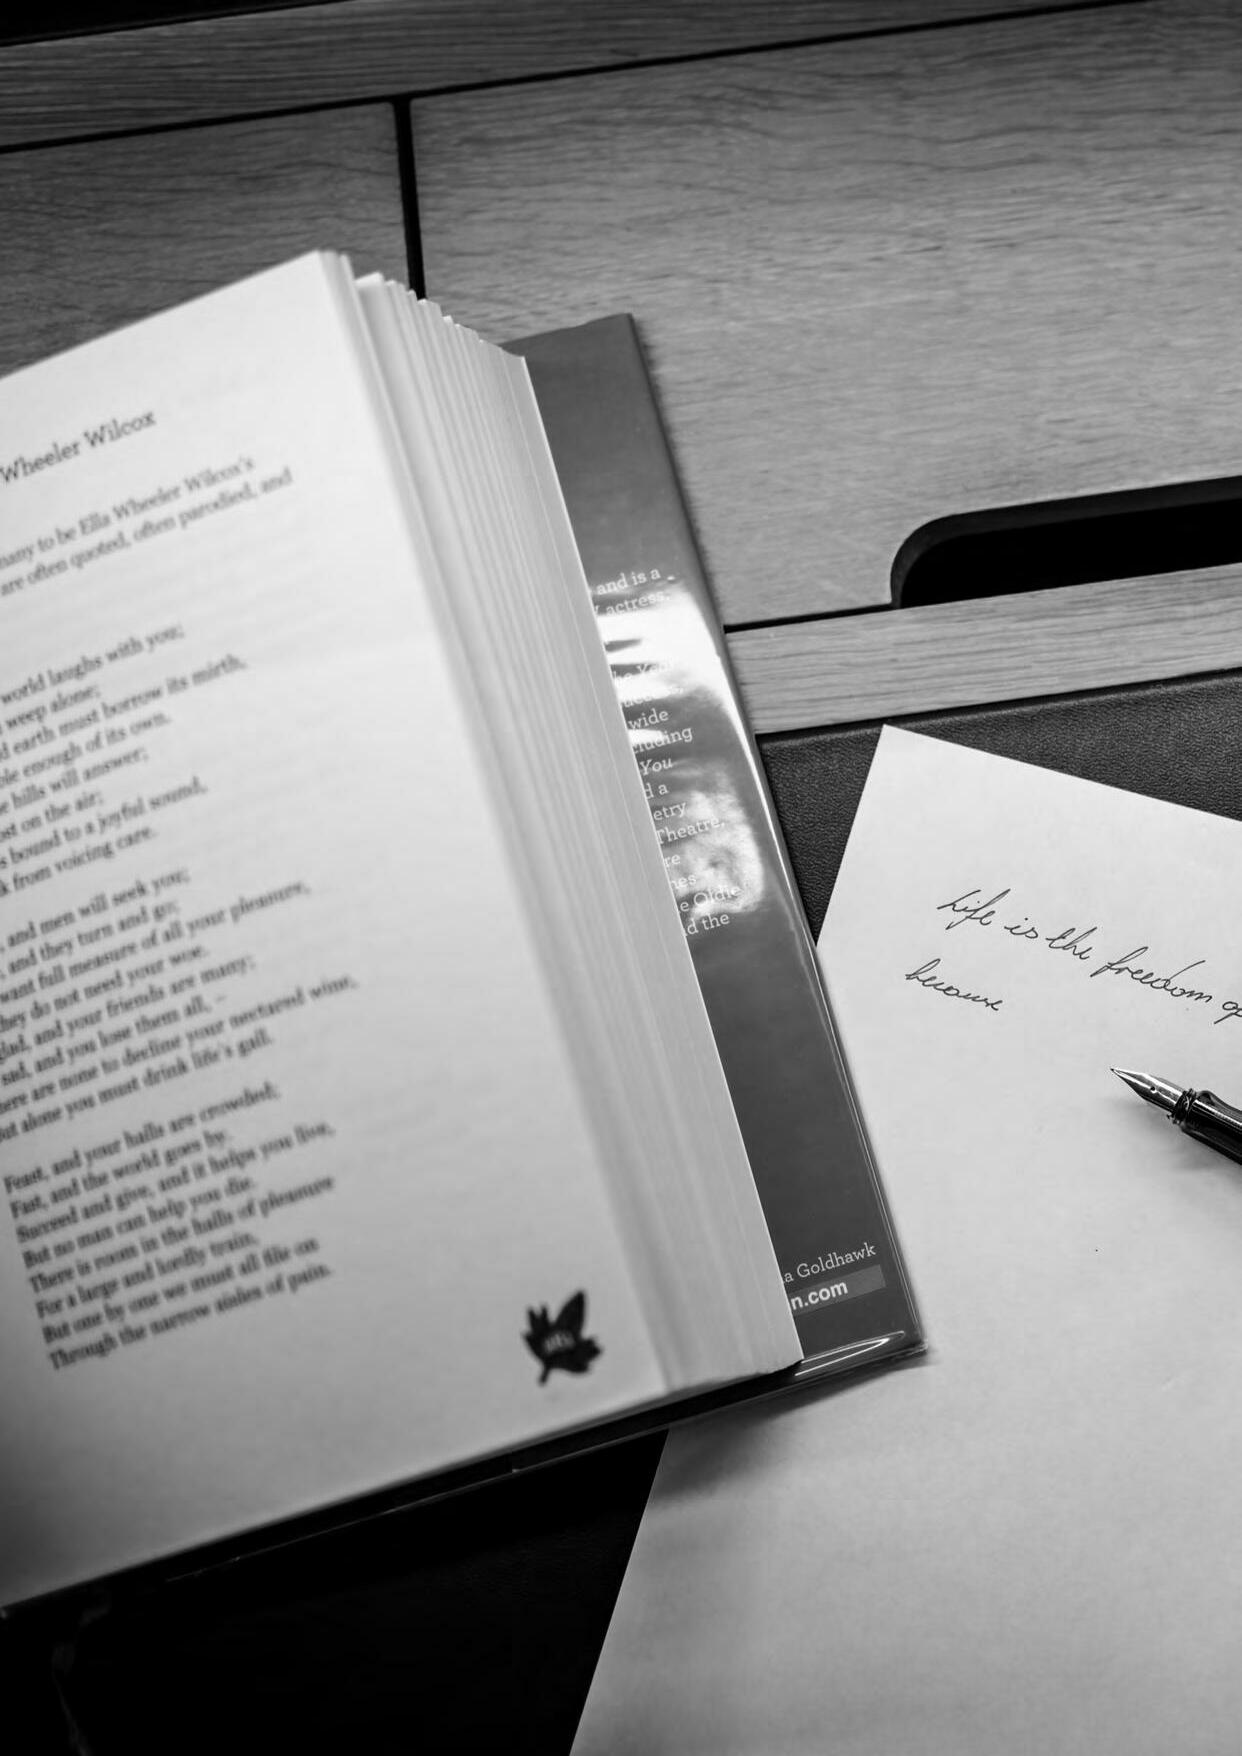 Wheeler Wilcox
many to be Ella Wheeler Wilcox's
are often quoted, often parodied, and
world laughs with you;
weep alone;
earth must borrow its mirth,
enough of its own.
hills will answer;
on the air;
bound to a joyful sound,
from voicing care.
and men will seek you;
and they turn and go;
want full measure of all your pleasure,
they do not need your woe.
glad, and your friends are many;
sad, and you lose them all, –
here are none to decline your nectared wine,
But alone you must drink life's gall.
Feast, and your halls are crowded;
Fast, and the world goes by.
Succeed and give, and it helps you live,
But no man can help you die.
There is room in the halls of pleasure
For a large and lordly train,
But one by one we must all file on
Through the narrow aisles of pain.
and is a
actress,
wide
You
d a
etry
Theatre,
re
e Oldie
d the
a Goldhawk
n.com
Life is the freedom
because